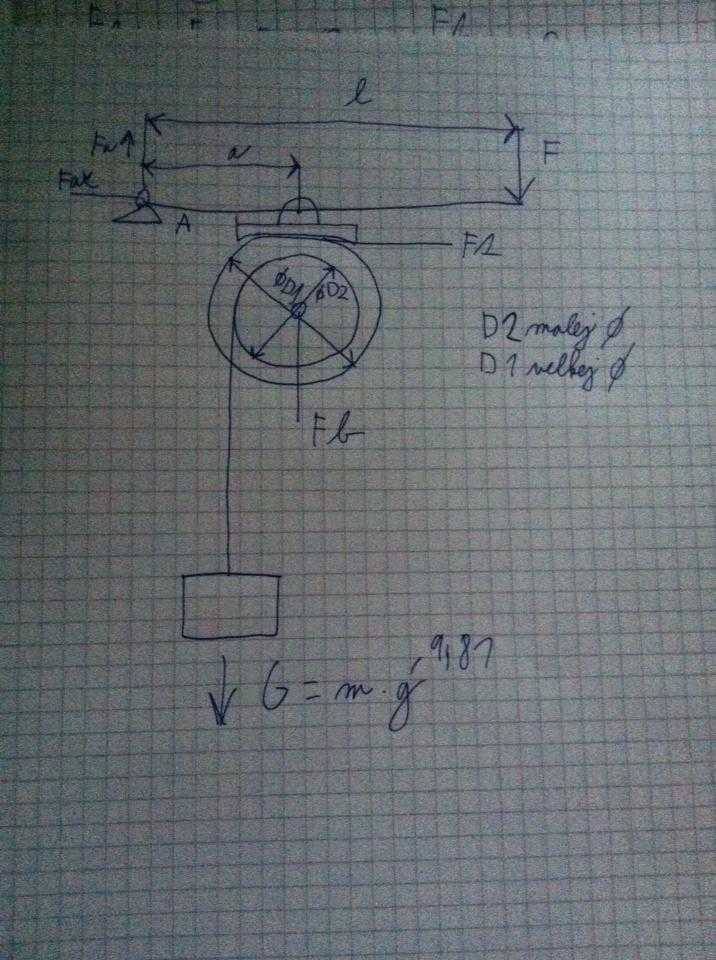 l
F
a
A
F1
ØD1
ØD2
D2 malej Ø
D1 velkej Ø
Fb
G = m · g 9,81